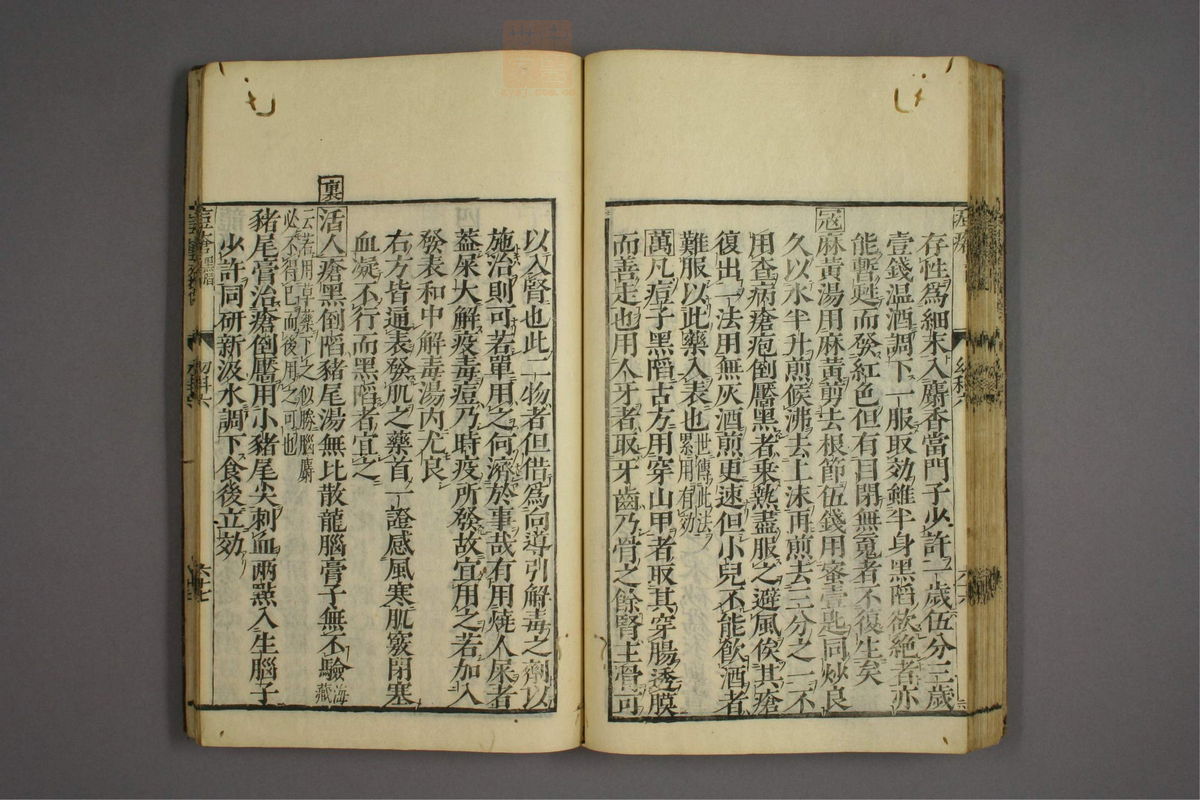 存性爲細末入麝香當門子少許一歲伍分三歲
壹錢温酒調下一服取効雖半身黑陷欲絶者亦
能暫甦而發紅色但有目閉無䰟者不復生矣
冦麻黄湯用麻黄剪去根節伍錢用蜜壹匙同炒良
久以水半升煎候沸去上沫再煎去三分之一不
用查病瘡疱倒黶黑者乗熱盡服之避風俟其瘡
復出一法用無灰酒煎更速但小兒不能飲酒者
難服以此藥入表也世傳此法累用有効
萬凡痘子黑陷古方用穿山甲者取其穿腸透膜
而善走也用人牙者取牙齒乃骨之餘腎主骨可
以入腎也此二物者但借爲向導引解毒之劑以
施治則可若單用之何濟於事哉有用燒人屎者
蓋屎大解疫毒痘乃時疫所發故宜用之若加入
發表和中解毒湯内尤良
右方皆通表發肌之藥首一證感風寒肌竅閉塞
血凝不行而黑陷者宜之
裏
活人瘡黑倒陷豬尾湯無比散龍腦膏子無不驗海藏
云若用草藥下之似勝腦麝必不得已而後用之可也
豬尾膏治瘡倒黶用小豬尾尖刺血兩㸃入生腦子
少許同研新汲水調下食後立効
痘瘡黑陷
幼科六
六十七